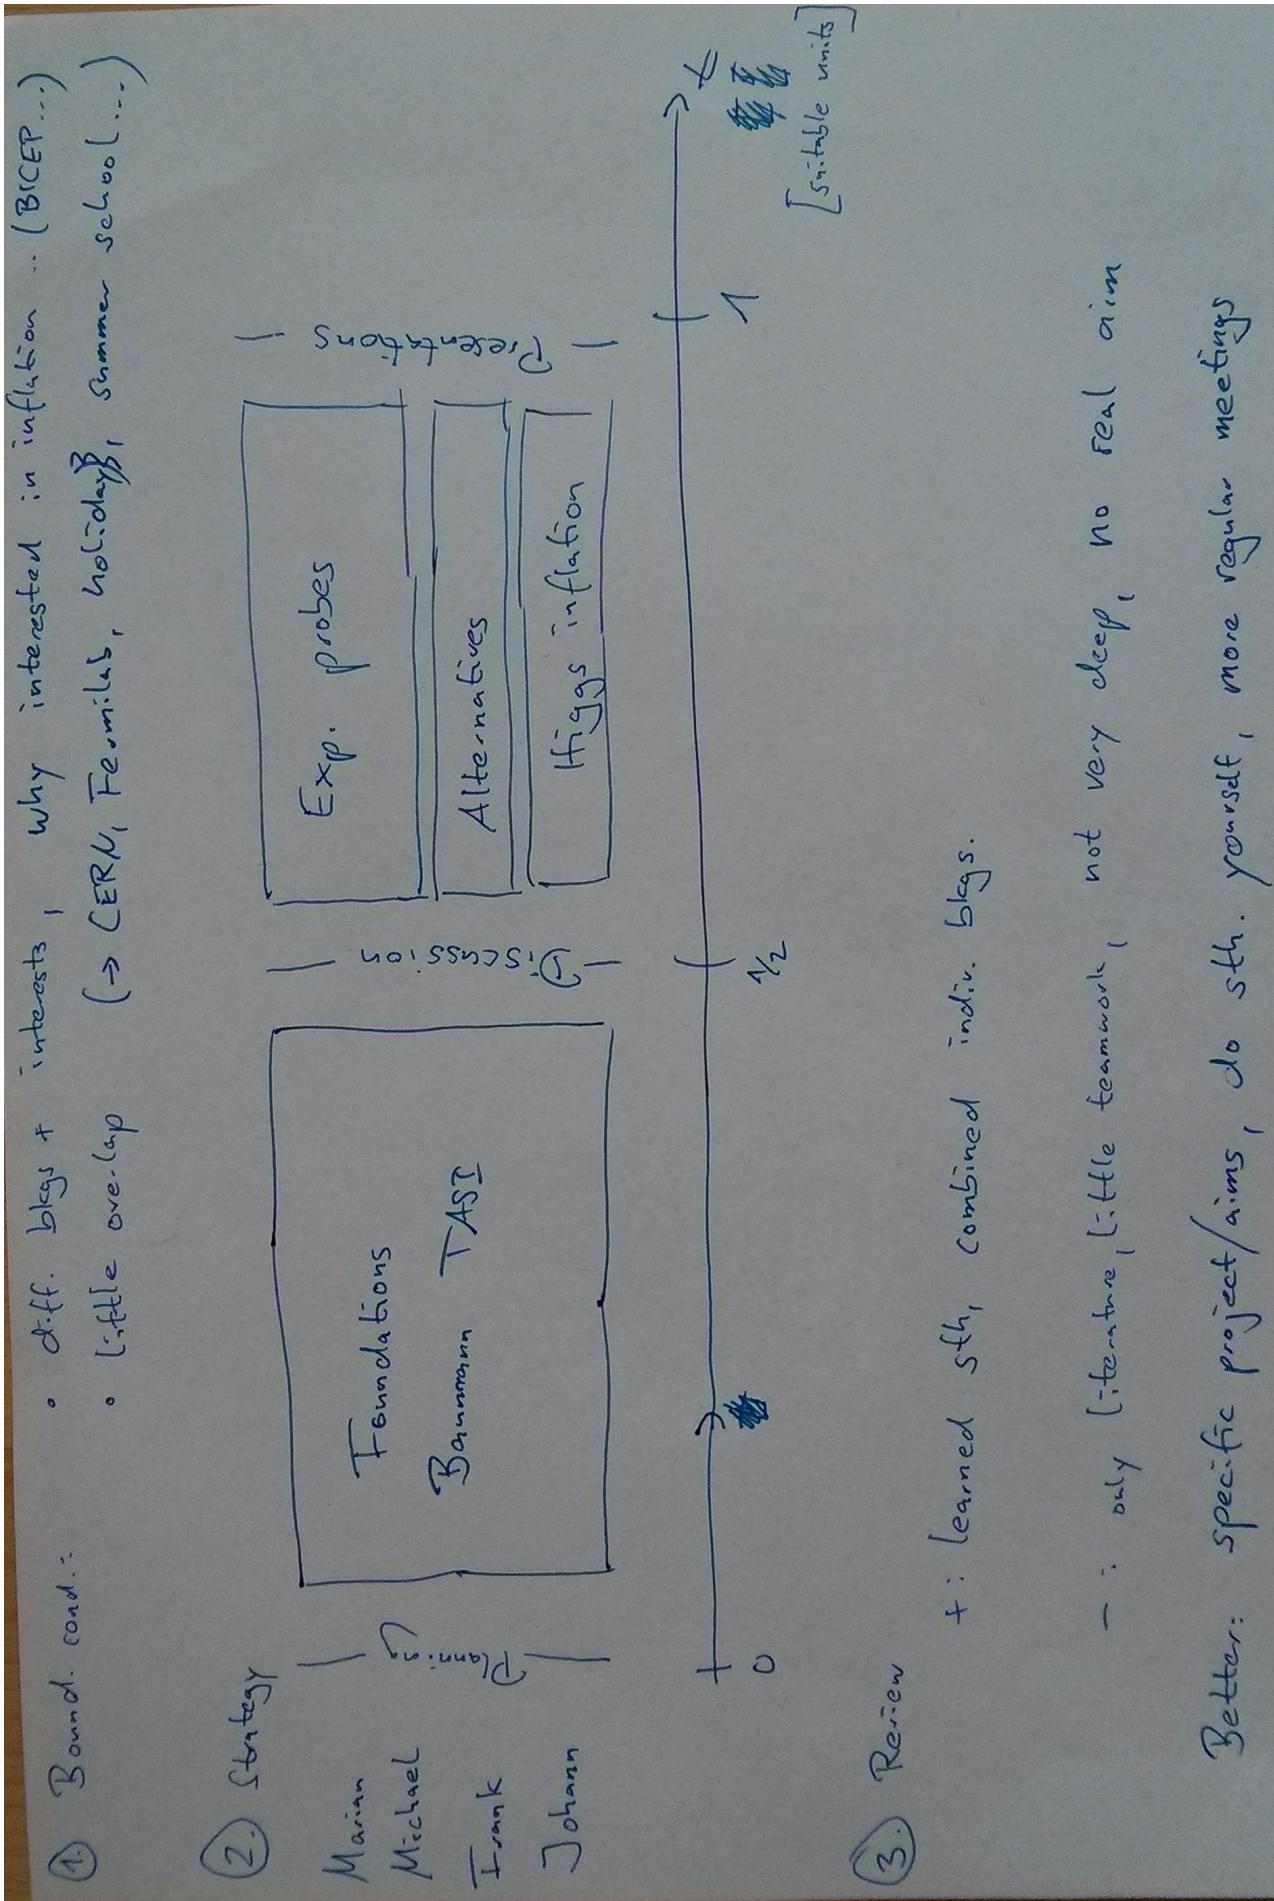 1. Bound. cond.:
• diff. bkgs + interests, why interested in inflation ... (BICEP...)
• little overlap (→ CERN, Fermilab, holidays, summer school...)
2. Strategy
Marian
Michael
Frank
Johann
Planning
Foundations
Baumann TASI
Discussion
Exp. probes
Alternatives
Higgs inflation
Presentations
0
1/2
1
t
[suitable units]
3. Review
+ : learned sth, combined indiv. bkgs.
- : only literature, little teamwork, not very deep, no real aim
Better: specific project/aims, do sth. yourself, more regular meetings